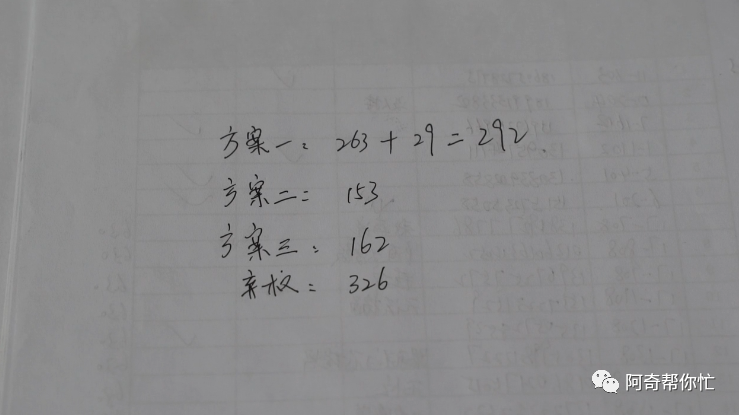 方案一：263+29=292.
方案二：153
方案三：162
弃权：326
阿奇帮你忙